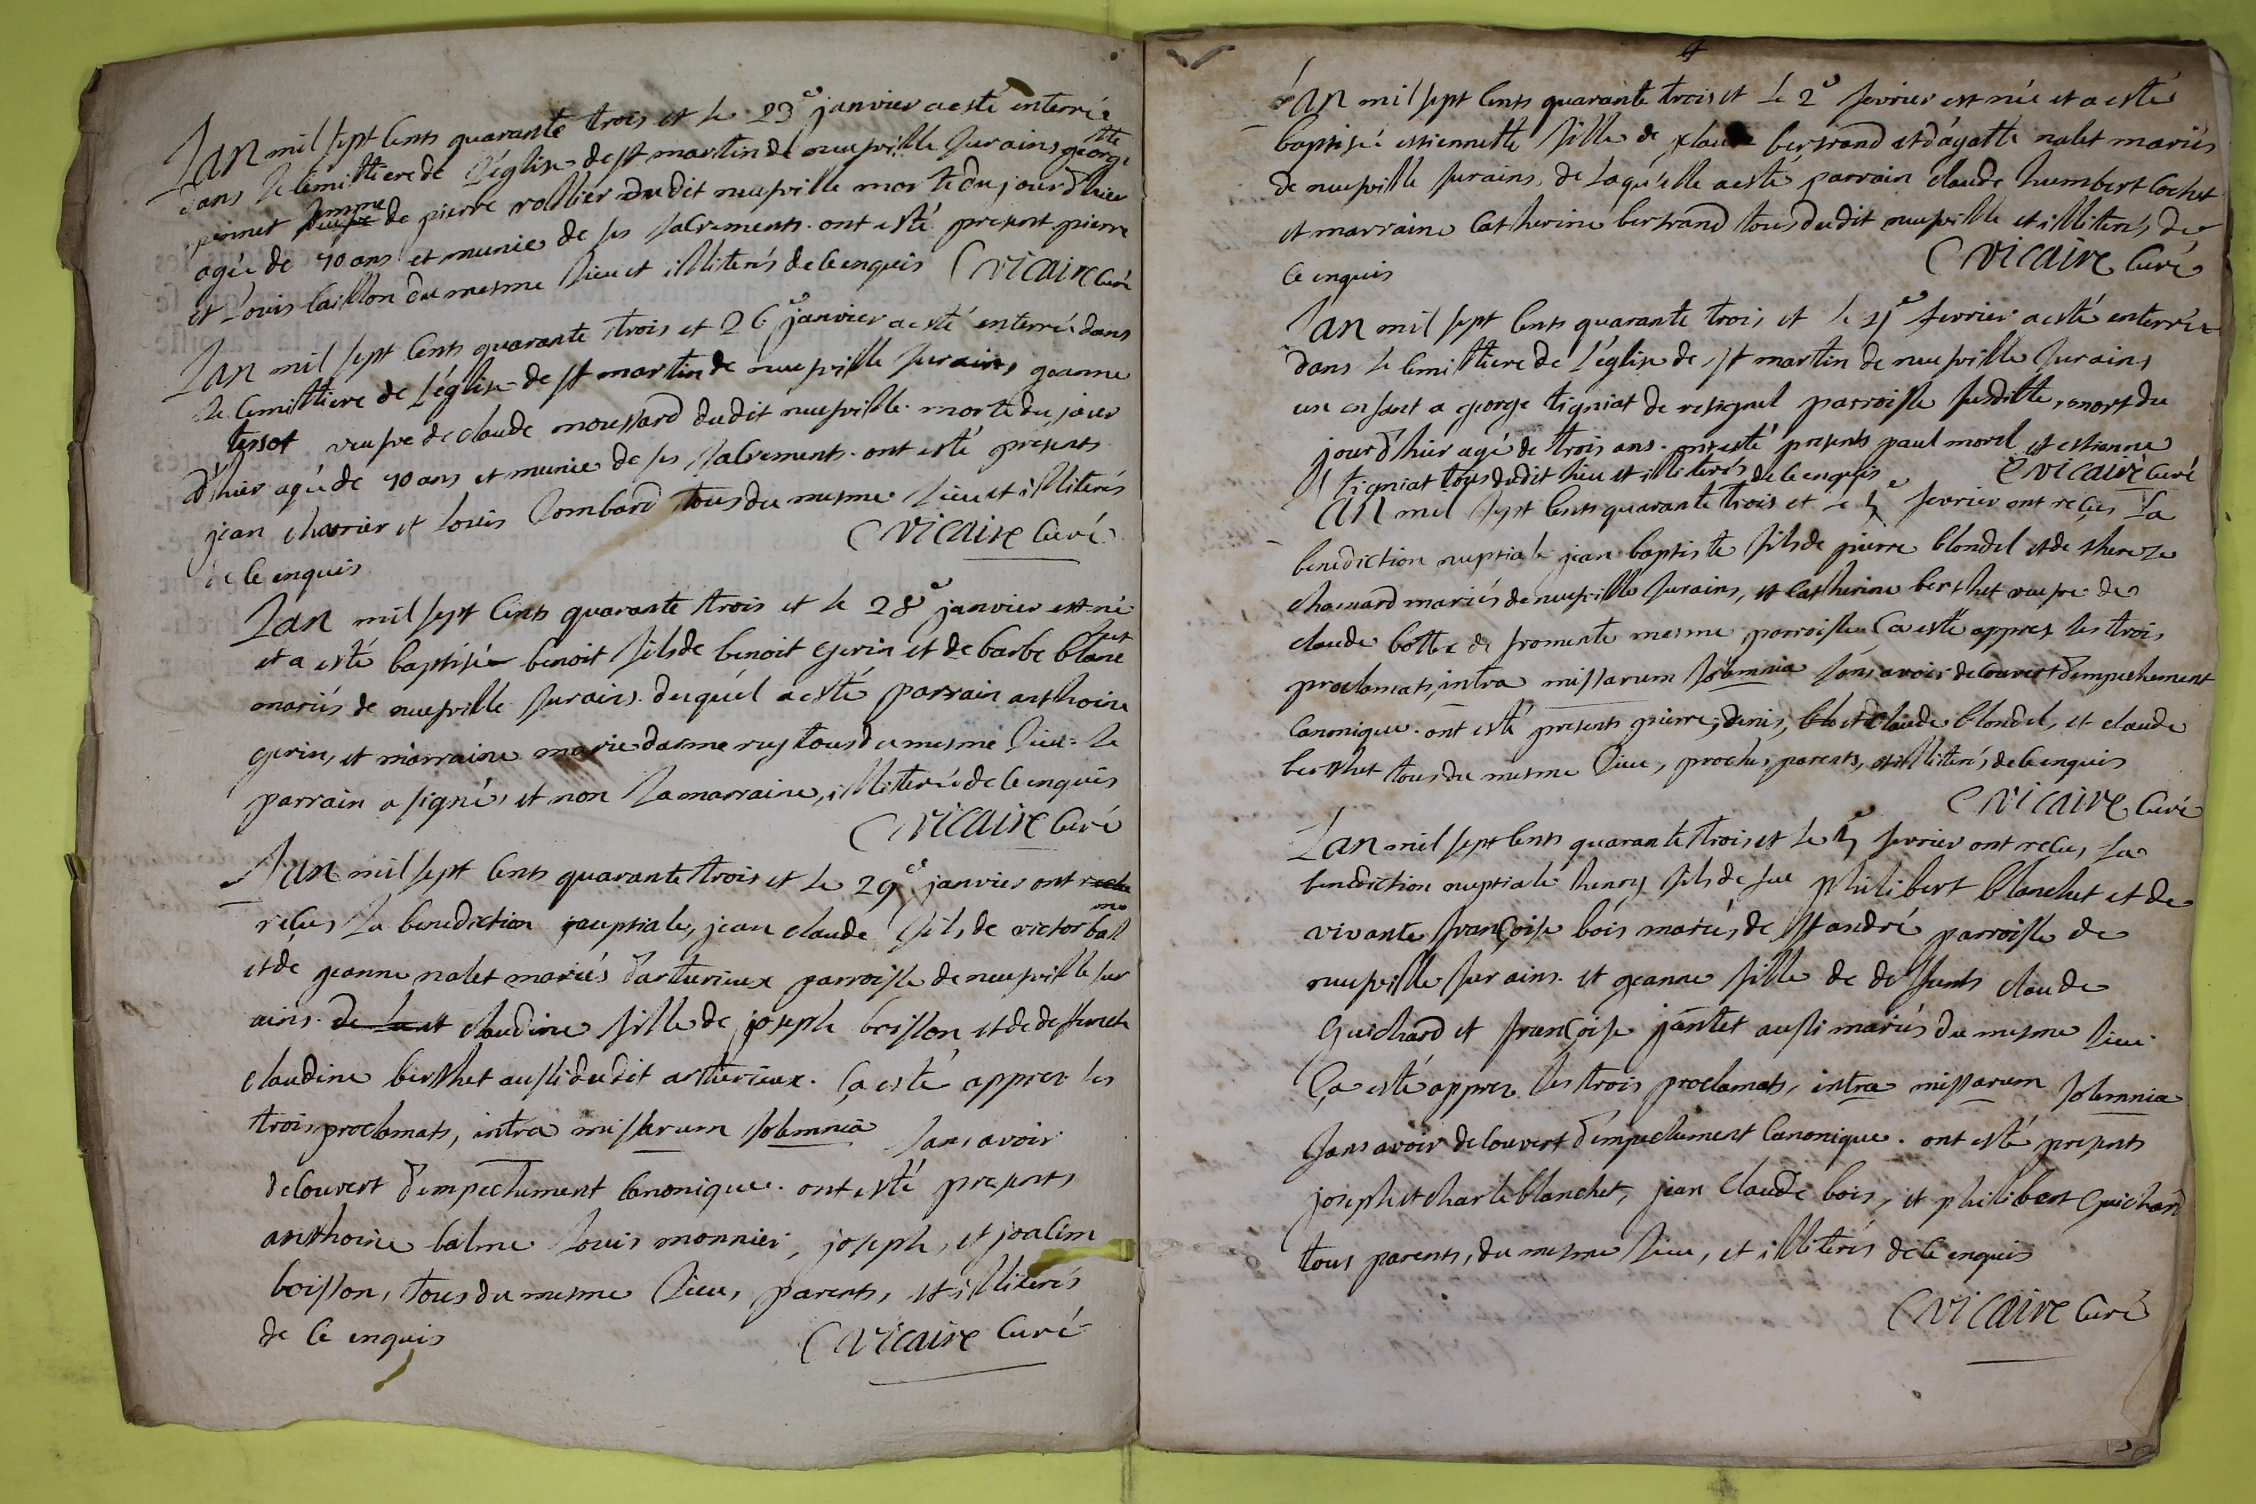 Lan mil sept cents quarante trois et le 23e janvier a esté enterrée
dans le cemittiere de l'église de st martin de neufville sur ains george
tte
pinnet femme veufve de pierre rollier dudit neufville morte du jour d'hier
agée de 70 ans et munie de ses sacrements. ont esté present pierre
et louis caillon du mesme lieu et illiterés de ce enquis C vicaire curé
Lan mil sept cents quarante trois et 26e janvier a esté enterrée dans
le cemittiere de l'église de st martin de neufville sur ains jeanne
tissot veufve de claude moussard dudit neufville morte du jour
d'hier agée de 70 ans et munie de ses sacrements. ont esté presents
jean charrier et louis lombard tous du mesme lieu et illiterés
de ce enquis C vicaire curé
Lan mil sept cents quarante trois et le 28e janvier est né
et a esté baptisé benoit fils de benoit gerin et de barbe blanchet
mariés de neufville sur ains. duquel a esté parrain anthoine
gerin, et marraine marie dasmeruy tous du mesme lieu. le
parrain a signé, et non la marraine, illiterée de ce enquis
C vicaire curé
Lan mil sept cents quarante trois et le 29e janvier ont
reçus la benediction nuptiale, jean claude fils de victor balmo
et de jeanne nalet mariés d'arturieux parroisse de neufville sur
ains. claudine fille de joseph boisson et de deffuncte
claudine berthet aussi dudit arturieux. Ça esté apprez les
trois proclamats, intra missarum solemnia sans avoir
decouvert d'empechement canonique. ont esté presents
anthoine balme louis monnier, joseph, et joacim
boisson, tous du mesme lieu, parents, et illiterés
de ce enquis C vicaire curé
Lan mil sept cents quarante trois et le 2e fevrier est née et a esté
baptisée estiennette fille de claude bertrand et d'agatte nalet mariés
de neufville sur ains, de laquelle a esté parrain claude humbert cochet
et marraine catherine bertrand tous dudit neufville et illiterés de
ce enquis C vicaire curé
Lan mil sept cents quarante trois et le 4e fevrier a esté enterrée
dans le cemittiere de l'église de st martin de neufville sur ains
un enfant a george tigniat de resignel parroisse susditte, mort du
jour d'hier agé de trois ans. ont esté presents paul morel et estienne
tigniat tous dudit lieu et illiterés de ce enquis C vicaire curé
Lan mil sept cents quarante trois et le 5e fevrier ont reçus la
benediction nuptiale jean baptiste fils de pierre blondel et de thereze
chanard mariés de neufville sur ains, et catherine berthet veufve de
claude bottex de fromente mesme parroisse Ça esté apprez les trois
proclamats, intra missarum solemnia sans avoir decouvert d'empechement
canonique. ont esté presents pierre, denis, et claude blondel, et claude
berthet tous du mesme lieu, proches parents, et illiterés, de ce enquis
C vicaire curé
Lan mil sept cents quarante trois et le 5e fevrier ont reçus la
benediction nuptiale henry fils de feu philibert blanchet et de
vivante françoise bois mariés, de st andré parroisse de
neufville sur ains. et jeanne fille de deffunts claude
Guichard et françoise jantet aussi mariés du mesme lieu.
Ça esté apprez les trois proclamats, intra missarum solemnia
sans avoir decouvert d'empechement canonique. ont esté presents
joseph et charle blanchet, jean claude bois, et philibert guichard
tous parents, du mesme lieu, et illiterés de ce enquis
C vicaire curé